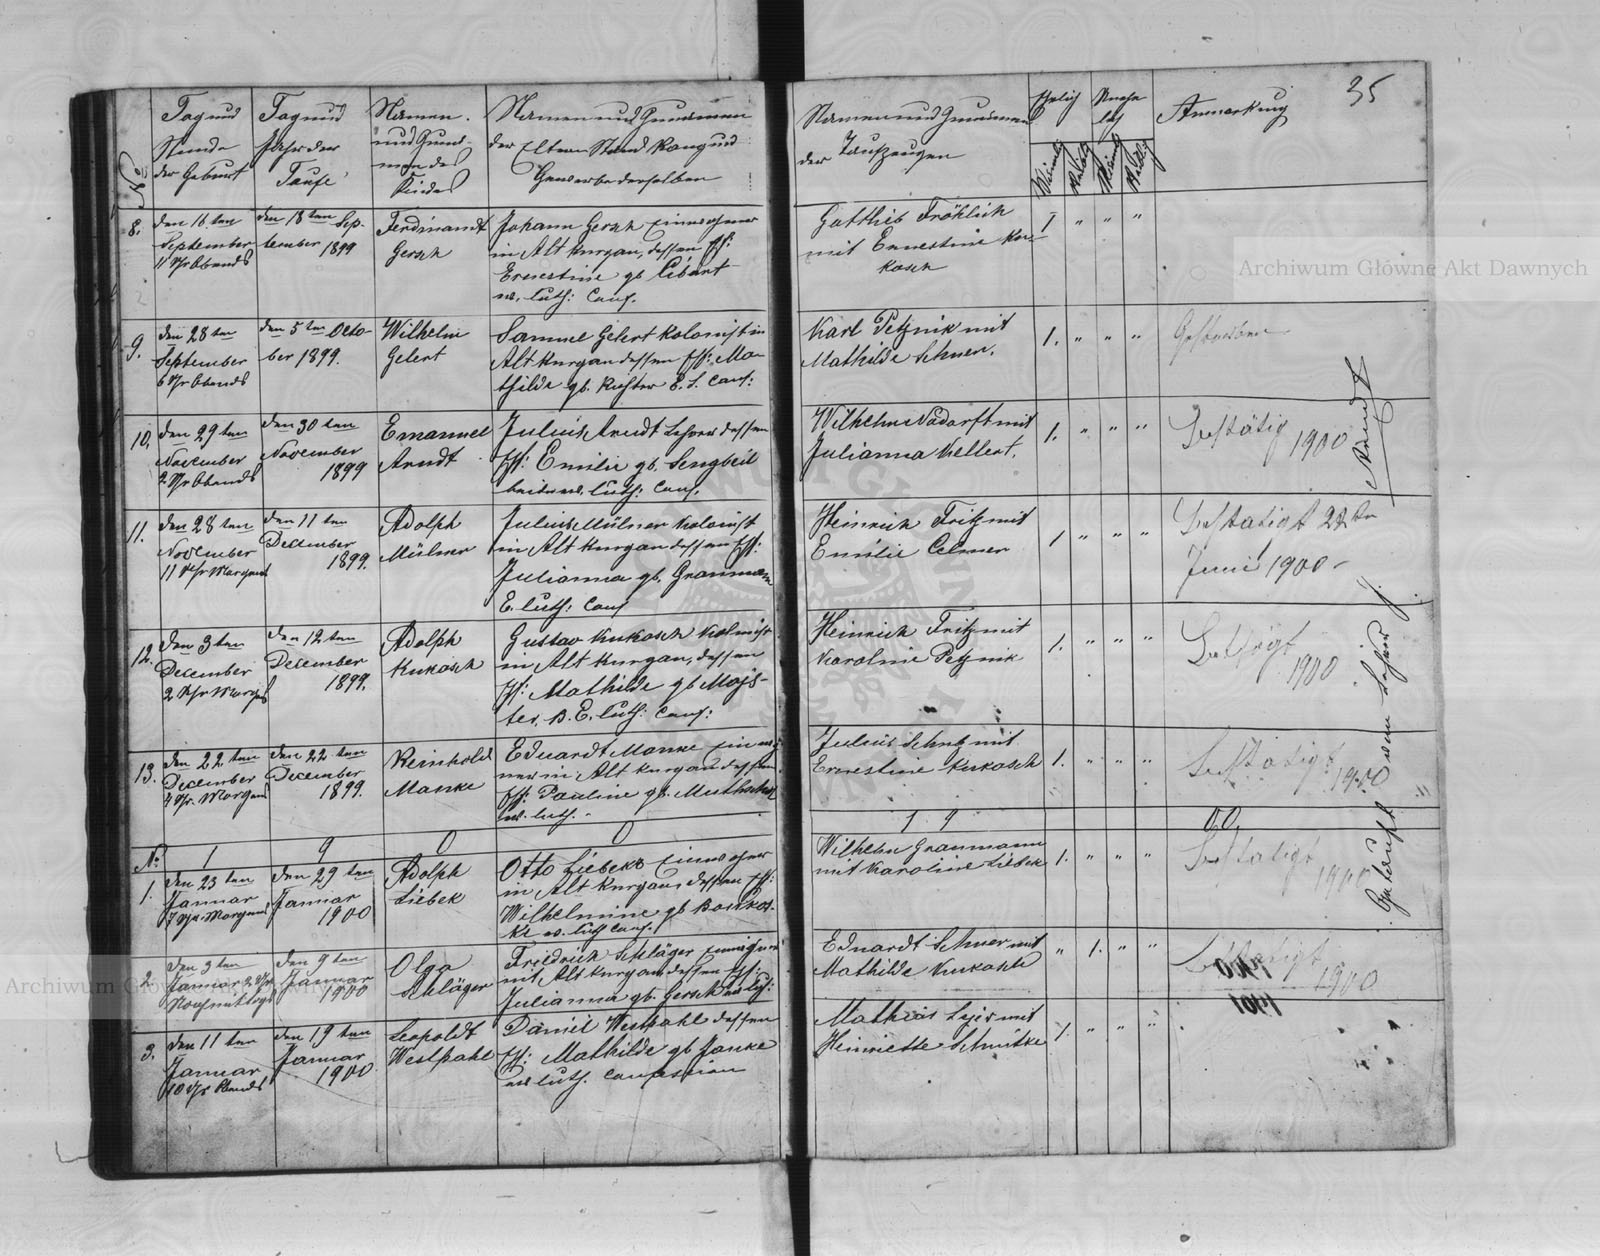 35
No
Tag und
Stunde
der Geburt
Tag und
Jahr der
Taufe
Namen
und Zuna-
men des
Kindes
Namen und Zunamen
der Eltern Stand Rang und
Gewerbe derselben
Namen und Zunamen
der Taufzeugen
Ehrlich
Unehr
lich
Anmerkung
8.
den 16 ten
September
11 Uhr Abends
den 18 ten Sep-
tember 1899
Ferdinandt
Gersch
Johann Gersch Einwohner
in Alt Kurgan, dessen Eh:
Ernestine gb
ev. Luth: Conf.
Gottlieb Fröhlich
mit Ernestine Ku-
kosch
1
9.
den 28 ten
September
6 Uhr Abends
den 5 ten Octo-
ber 1899.
Wilhelm
Gelert
Samuel Gelert Kolonist in
Alt Kurgan dessen Eh: Ma-
thilde gb. Richter E. L. Conf:
Karl Petznik mit
Mathilde
1.
Gestorben
10.
den 29 ten
November
2 Uhr Abends
den 30 ten
November
1899
Emanuel
Arndt
Julius Arndt Lehrer dessen
Eh: Emilie gb. Sengbeil
beide ev. Luth: Conf.
Wilhelm Nadorft mit
Julianna Kellert.
1.
Bestätig
1900
Arndt
11.
den 28 ten
November
11 Uhr Morgens
den 11 ten
December
1899.
Adolph
Mülner
Julius Mülner Kolonist
in Alt Kurgan dessen Eh:
Julianna gb. Graumann
E. Luth: Conf
Heinrich Fritz mit
Emilie
1
Bestätigt 22 te
Juni 1900 -
12.
den 3 ten
December
2 Uhr Morgens
den 12 ten
December
1899.
Adolph
Kukosch
Gustav Kukosch Kolonist
in Alt Kurgan, dessen
Eh: Mathilde gb Majs-
ter. B. E. Luth: Conf:
Heinrich Fritz mit
Karoline Petznik
1.
1900
13.
den 22 ten
December
4 Uhr Morgens
den 22 ten
December
1899.
Reinhold
Manke
Eduardt Manke Einwoh-
ner in Alt Kurgan dessen
Eh: Pauline gb.
ev. Luth.
Julius Schulz mit
Ernestine Kukosch
1.
Bestätigt
1900
No
1 9 0 0
1 9 00.
1.
den 23 ten
Januar
7 Uhr Morgens
den 29 ten
Januar
1900
Adolph
Liebek
Otto Liebek Einwohner
in Alt Kurgan dessen Eh:
Wilhelmine gb
ev. Luth Conf.
Wilhelm Graumann
mit Karoline Liebek
1.
Bestätigt
1900
2.
den 3 ten
Januar 2 Uhr
Nachmittags
den 9 ten
Januar
1900
Olga
Schläger
Friedrich Schläger Einwohner
mit Alt Kurgan dessen Eh:
Julianna gb. Gersch ev. Luth:
Eduardt mit
Mathilde Kukosch
1.
1900
3.
den 11 ten
Januar
10 Uhr Abends
den 19 ten
Januar
1900
Leopoldt
Westpahl
Daniel Westpahl dessen
Eh: Mathilde gb Janke
ev Luth. Confession
Mathias mit
Heinriette Schmitke
1.
Archiwum Główne Akt Dawnych
Archiwum Główne Akt Dawnych